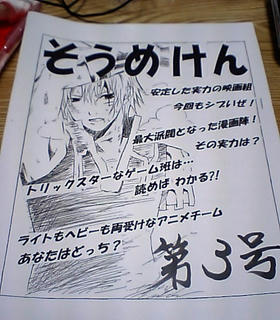 そうめけん
安定した実力の映画組
今回もシブいぜ！
最大派閥となった漫画陣！
その実力は？
トリックスターなゲーム班は…
読めば わかる?!
ライトもヘビーも両受けなアニメチーム
あなたはどっち？
第3号